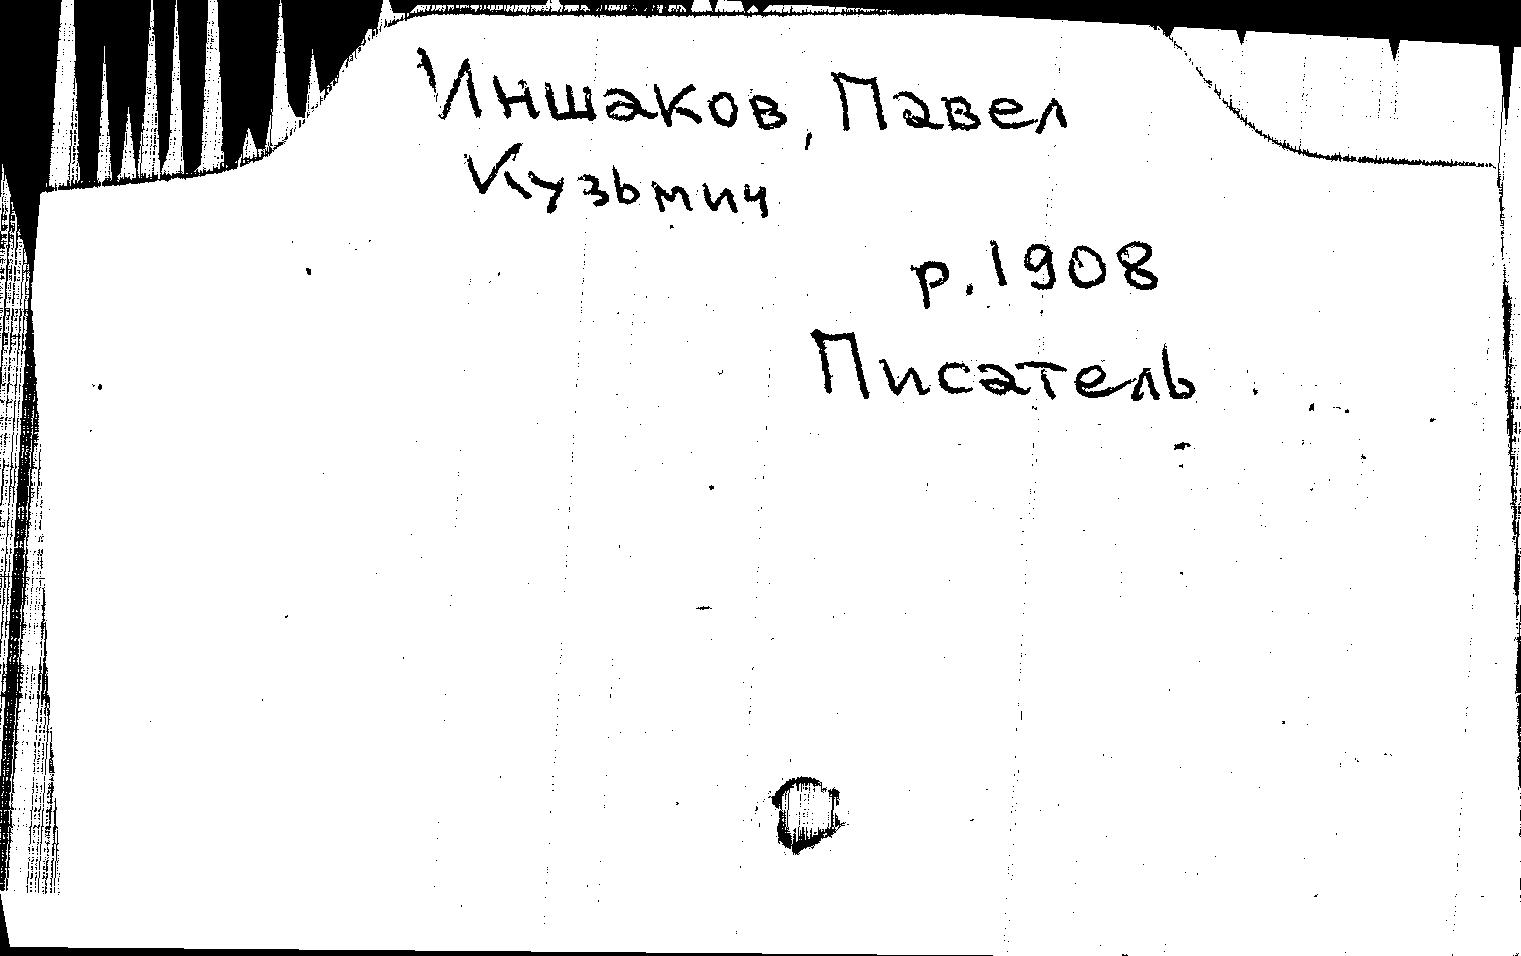 Иншаков, Павел
Кузьмич
р. 1908
Писатель